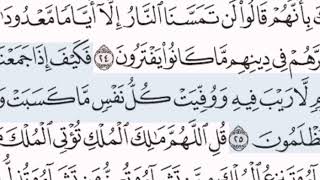 كَ بِأَنَّهُمْ قَالُوا۟ لَن تَمَسَّنَا ٱلنَّارُ إِلَّآ أَيَّامًا مَّعْدُودَٰ
هُمْ فِى دِينِهِم مَّا كَانُوا۟ يَفْتَرُونَ ٢٤ فَكَيْفَ إِذَا جَمَعْنَـٰ
مٍ لَّا رَيْبَ فِيهِ وَوُفِّيَتْ كُلُّ نَفْسٍ مَّا كَسَبَتْ وَ
يُظْلَمُونَ ٢٥ قُلِ ٱللَّهُمَّ مَـٰلِكَ ٱلْمُلْكِ تُؤْتِى ٱلْمُلْكَ مَ